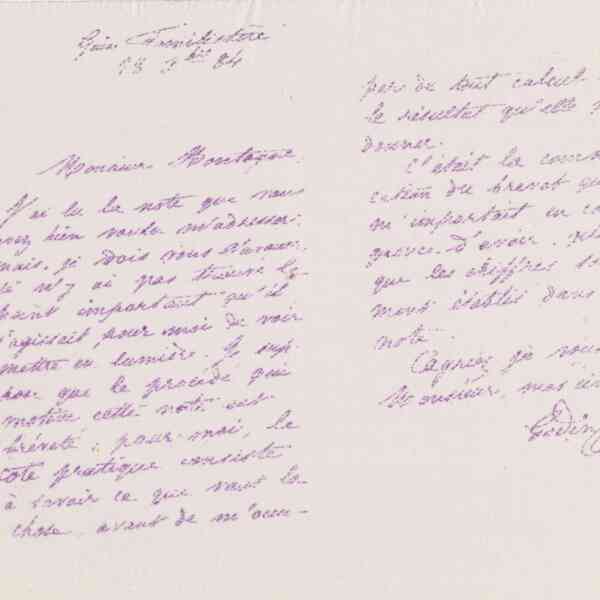 Guise Familistère
18 9bre 84
Monsieur Montagne,
J'ai lu la note que vous
avez bien voulu m'adresser
mais, je dois vous l'avouer,
je n'y ai pas trouvé le
point important qu'il
s'agissait pour moi de voir
mettre en lumière. Je sup-
pose que le procédé qui
motive cette note est
breveté; pour moi, le
côté pratique consiste
à savoir ce que vaut la
chose, avant de m'occu-
per du tout calcul
le résultat qu'elle
donner.
C'était la comm
cation du brevet qu
m'importait en co
quence d'avoir.
que les chiffres
ment établis dans
note.
Agréez, je vous
Monsieur, mes
Godin